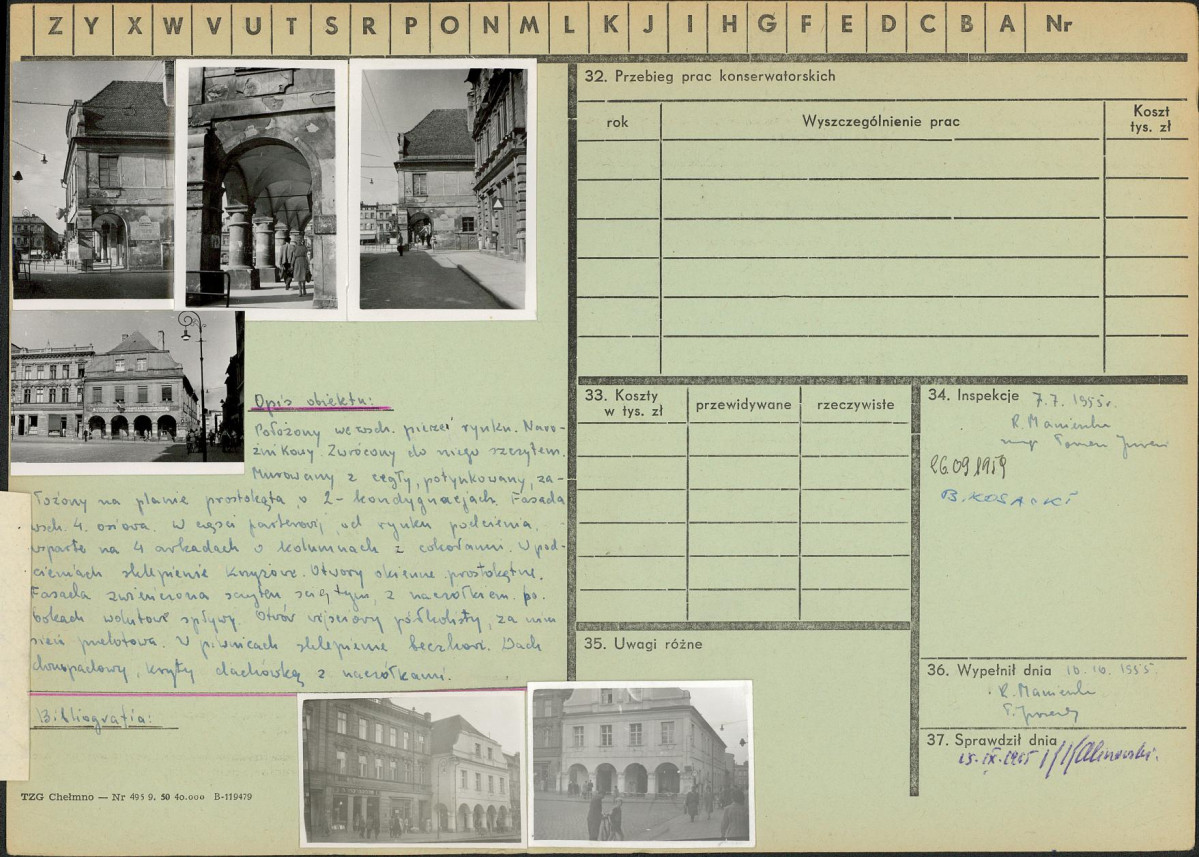 Z Y X W V U T S R P O N M L K J I H G F E D C B A Nr
32. Przebieg prac konserwatorskich
rok Wyszczególnienie prac Koszt tys. zł
Opis obiektu:
Położony we wsch. pierzei rynku. Naro-
żnikowy. Zwrócony do niego szczytem.
Murowany z cegły, potynkowany, za-
łożony na planie prostokąta o 2-kondygnacjach. Fasada
wsch. 4. osiowa. W części parterowej, od rynku podcienia,
wsparte na 4 arkadach o kolumnach z cokołami. W pod-
cieniach sklepienie krzyżowe. Otwory okienne prostokątne.
Fasada zwieńczona szczytem ściętym, z naczółkiem. po
bokach wolutowe spływy. Otwór wejściowy półkolisty, za nim
sień przelotowa. W piwnicach sklepienie beczkowe. Dach
dwuspadowy, kryty dachówką z naczółkami.
Bibliografia:
TZG Chełmno — Nr 495 9. 50 40.000 B-119479
33. Koszty w tys. zł przewidywane rzeczywiste
34. Inspekcje 7.7. 1955r.
R. Mamienka
mgr Tomasz
26.09 1959
B. KOSACKI
35. Uwagi różne
36. Wypełnił dnia 10. 10. 1955.
R. Mamienka
37. Sprawdził dnia